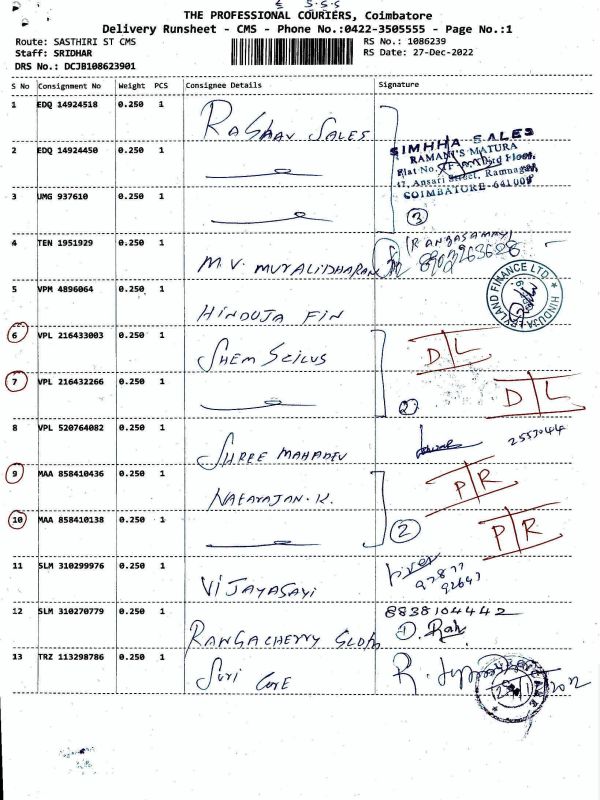 THE PROFESSIONAL COURIERS, Coimbatore
Delivery Runsheet - CMS - Phone No.:0422-3505555 - Page No.:1
Route: SASTHIRI ST CMS
RS No.: 1086239
Staff: SRIDHAR
RS Date: 27-Dec-2022
DRS No.: DCJB108623901
S No Consignment No Weight PCS Consignee Details Signature
1 EDQ 14924518 0.250 1 RAGHAV SALES
SIMHHA SALES
RAMANI'S MATURA
47, Ansari Street, Ramnagar,
COIMBATORE-641009
2 EDQ 14924450 0.250 1
3 UMG 937610 0.250 1
3
4 TEN 1951929 0.250 1 M.V. MURALIDHARAN
(RANGASAMAY)
5 VPM 4896064 0.250 1 HINDUJA FIN
HINDUJA LEYLAND FINANCE LTD.
6 VPL 216433003 0.250 1
D L
7 VPL 216432266 0.250 1
2
D L
8 VPL 520764082 0.250 1 SHREE MAHADEV
25530444
9 MAA 858410436 0.250 1 NATARAJAN.K.
P R
10 MAA 858410138 0.250 1
2
P R
11 SLM 310299976 0.250 1 VIJAYASAYI
97877
92647
12 SLM 310270779 0.250 1
8838104442
13 TRZ 113298786 0.250 1